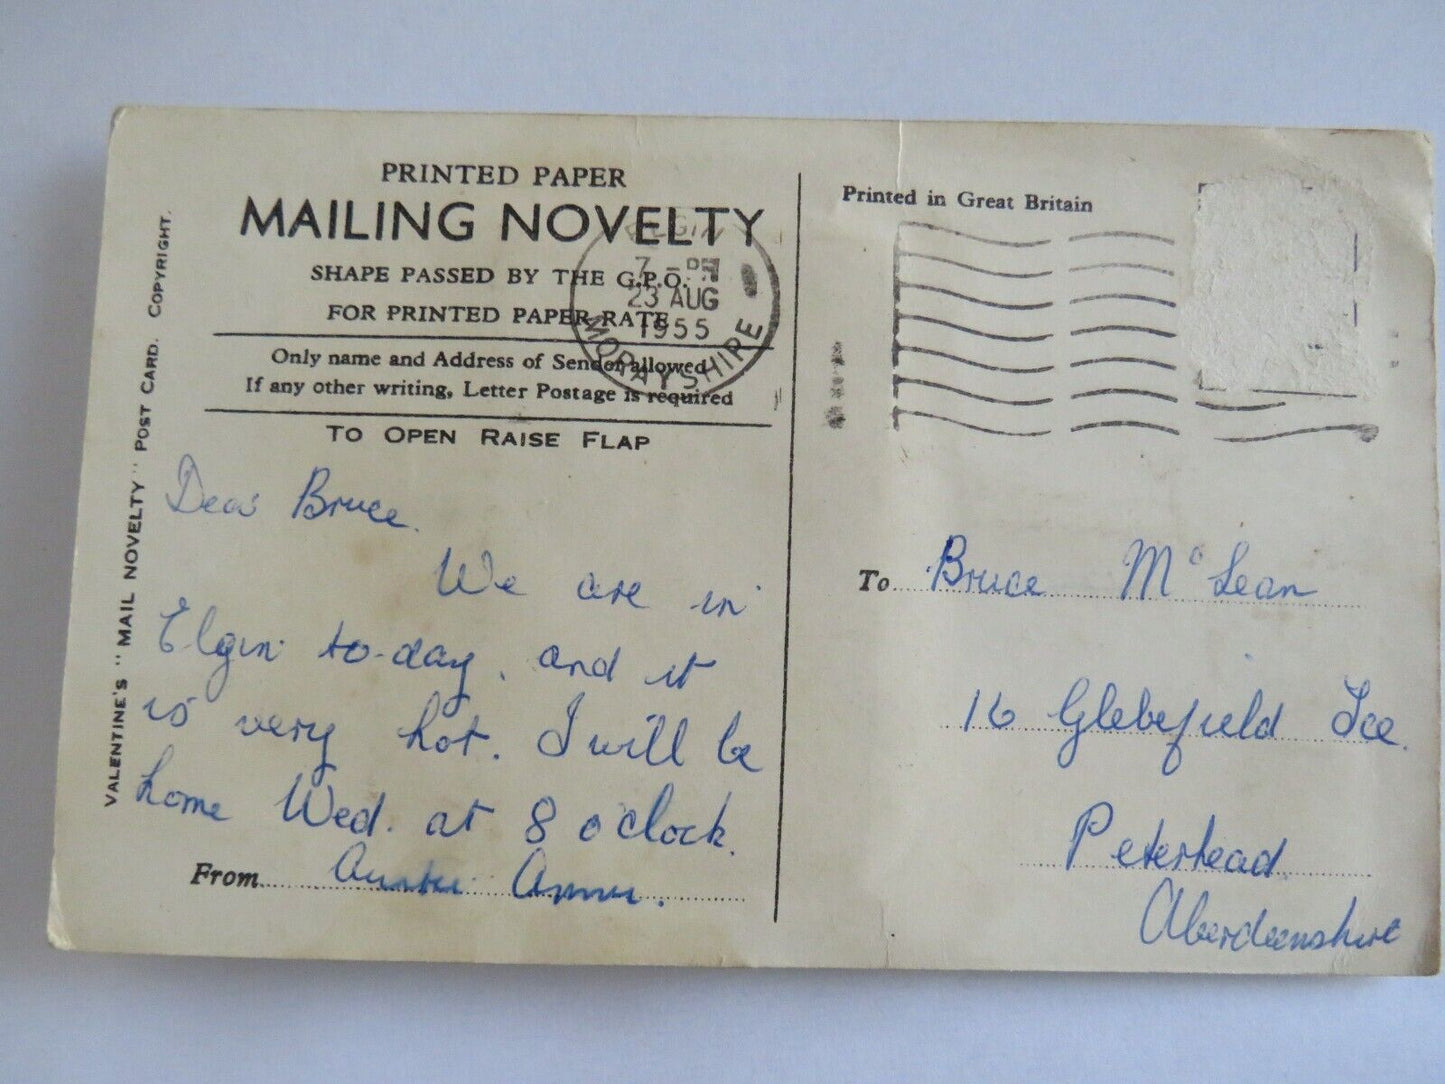 PRINTED PAPER
MAILING NOVELTY
SHAPE PASSED BY THE G.P.O.
FOR PRINTED PAPER RATE
Only name and Address of Sender allowed
If any other writing, Letter Postage is required
TO OPEN RAISE FLAP
VALENTINE'S "MAIL NOVELTY" POST CARD. COPYRIGHT.
ELGIN
7 - PM
23 AUG
1955
MORAYSHIRE
Dear Bruce.
We are in
Elgin to-day, and it
is very hot. I will be
home Wed. at 8 o clock.
From Auntie
Printed in Great Britain
To Bruce Mc Lean
16 Glebefield Tce.
Peterhead
Aberdeenshire